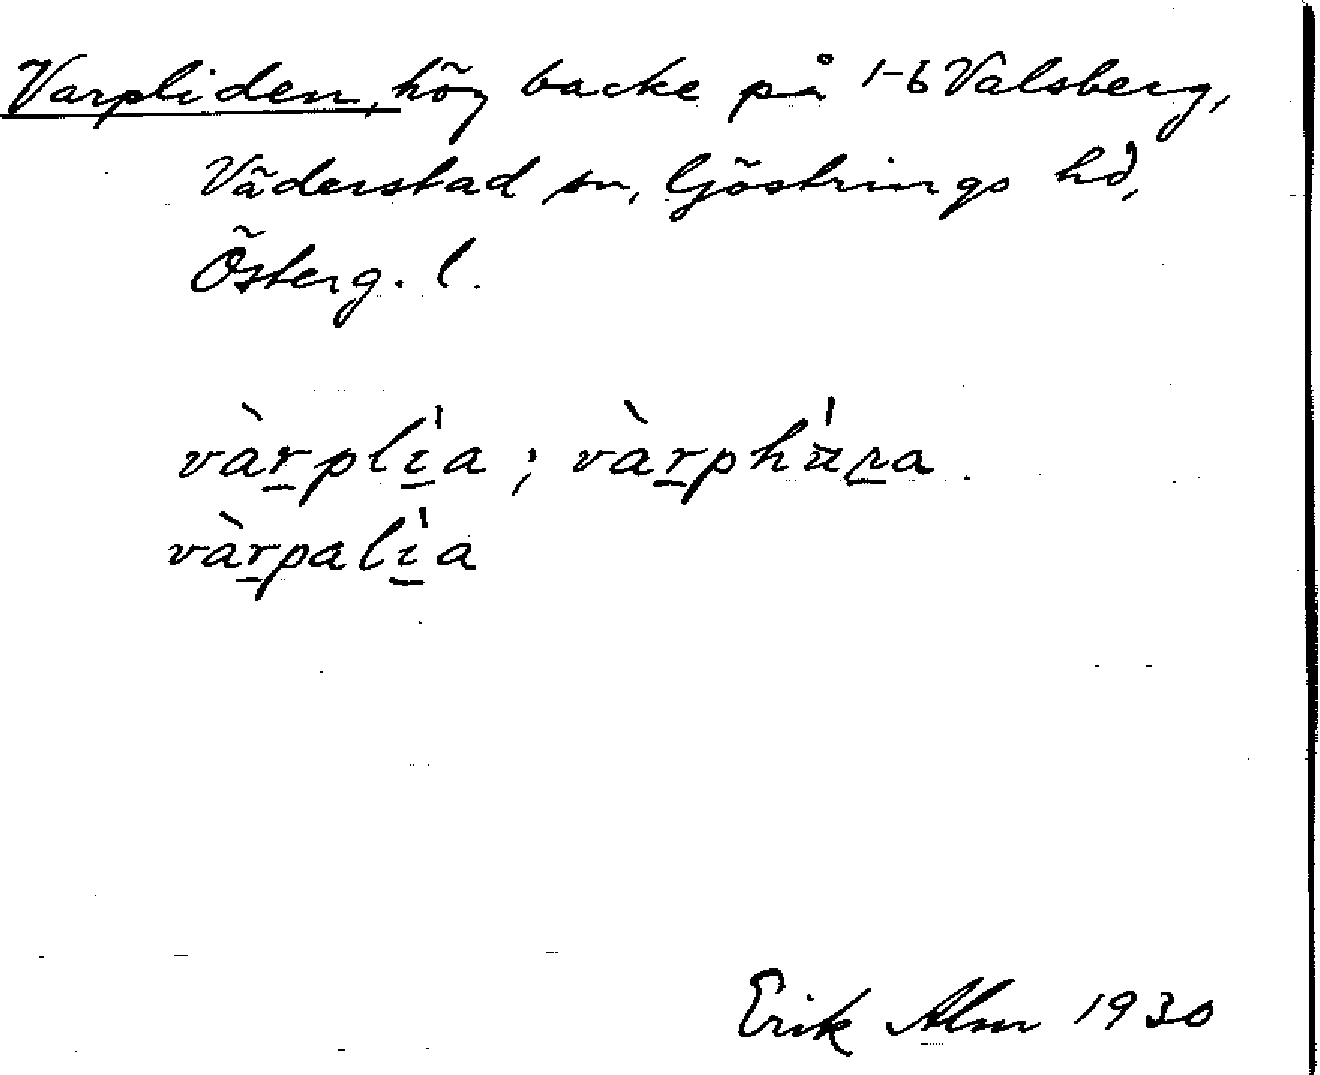 Varpliden, hög backe på 1-6 Valsberg,
Väderstad sn, Göstrings hd,
Österg. l.
vàr̲plı̲̍a ; vàr̲phʉ̍r̲a.
vàr̲palı̲̍a
Erik Alm 1930